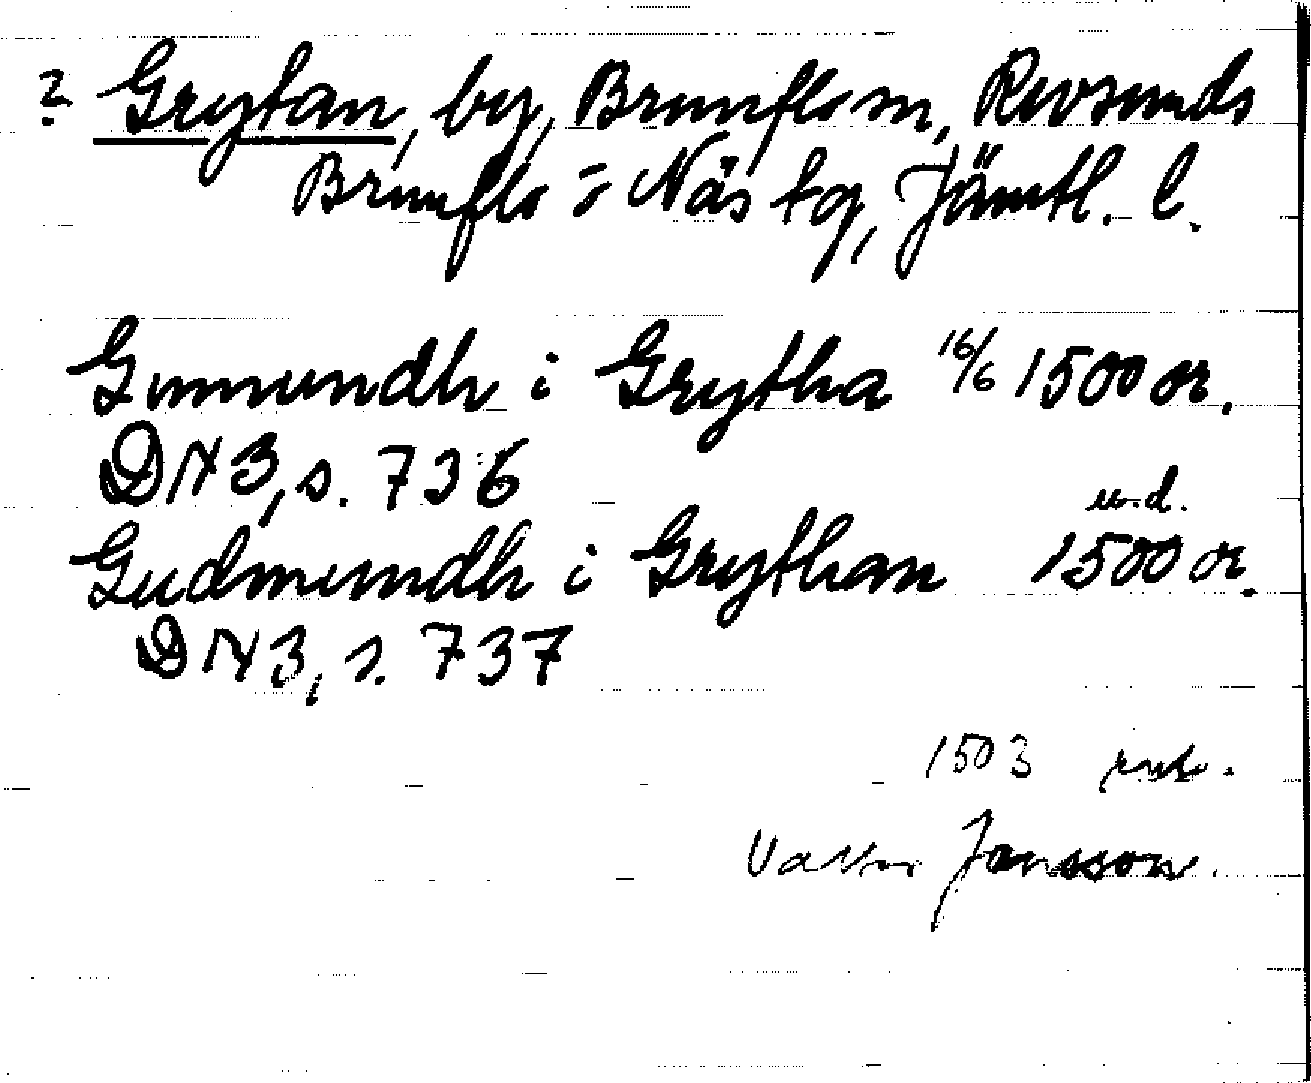 ? Grytan, by, Brunflo sn, Revsunds
Brunflo o Näs tg, Jämtl. l.
Gunmundh i Grytha 16/6 1500 or.
DN 3, s. 736
u.d.
Gudmundh i Grythan 1500 or.
DN 3, s. 737
1503
Jansson.